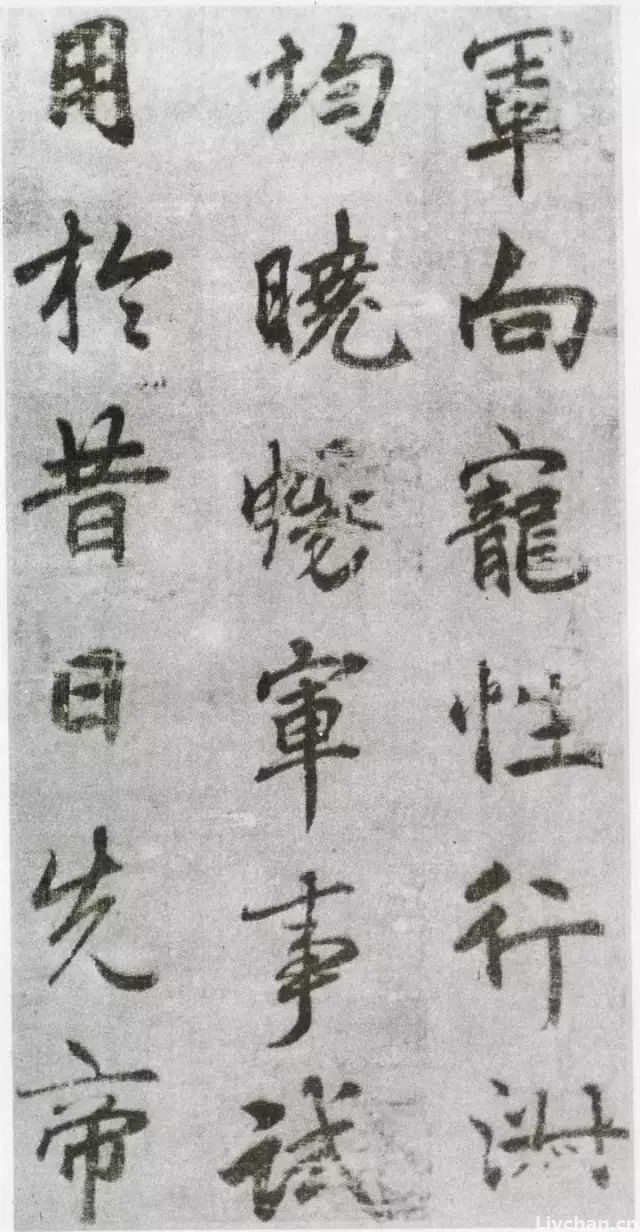 軍向寵性行淑
均曉暢軍事試
用於昔日先帝
Livchan.c